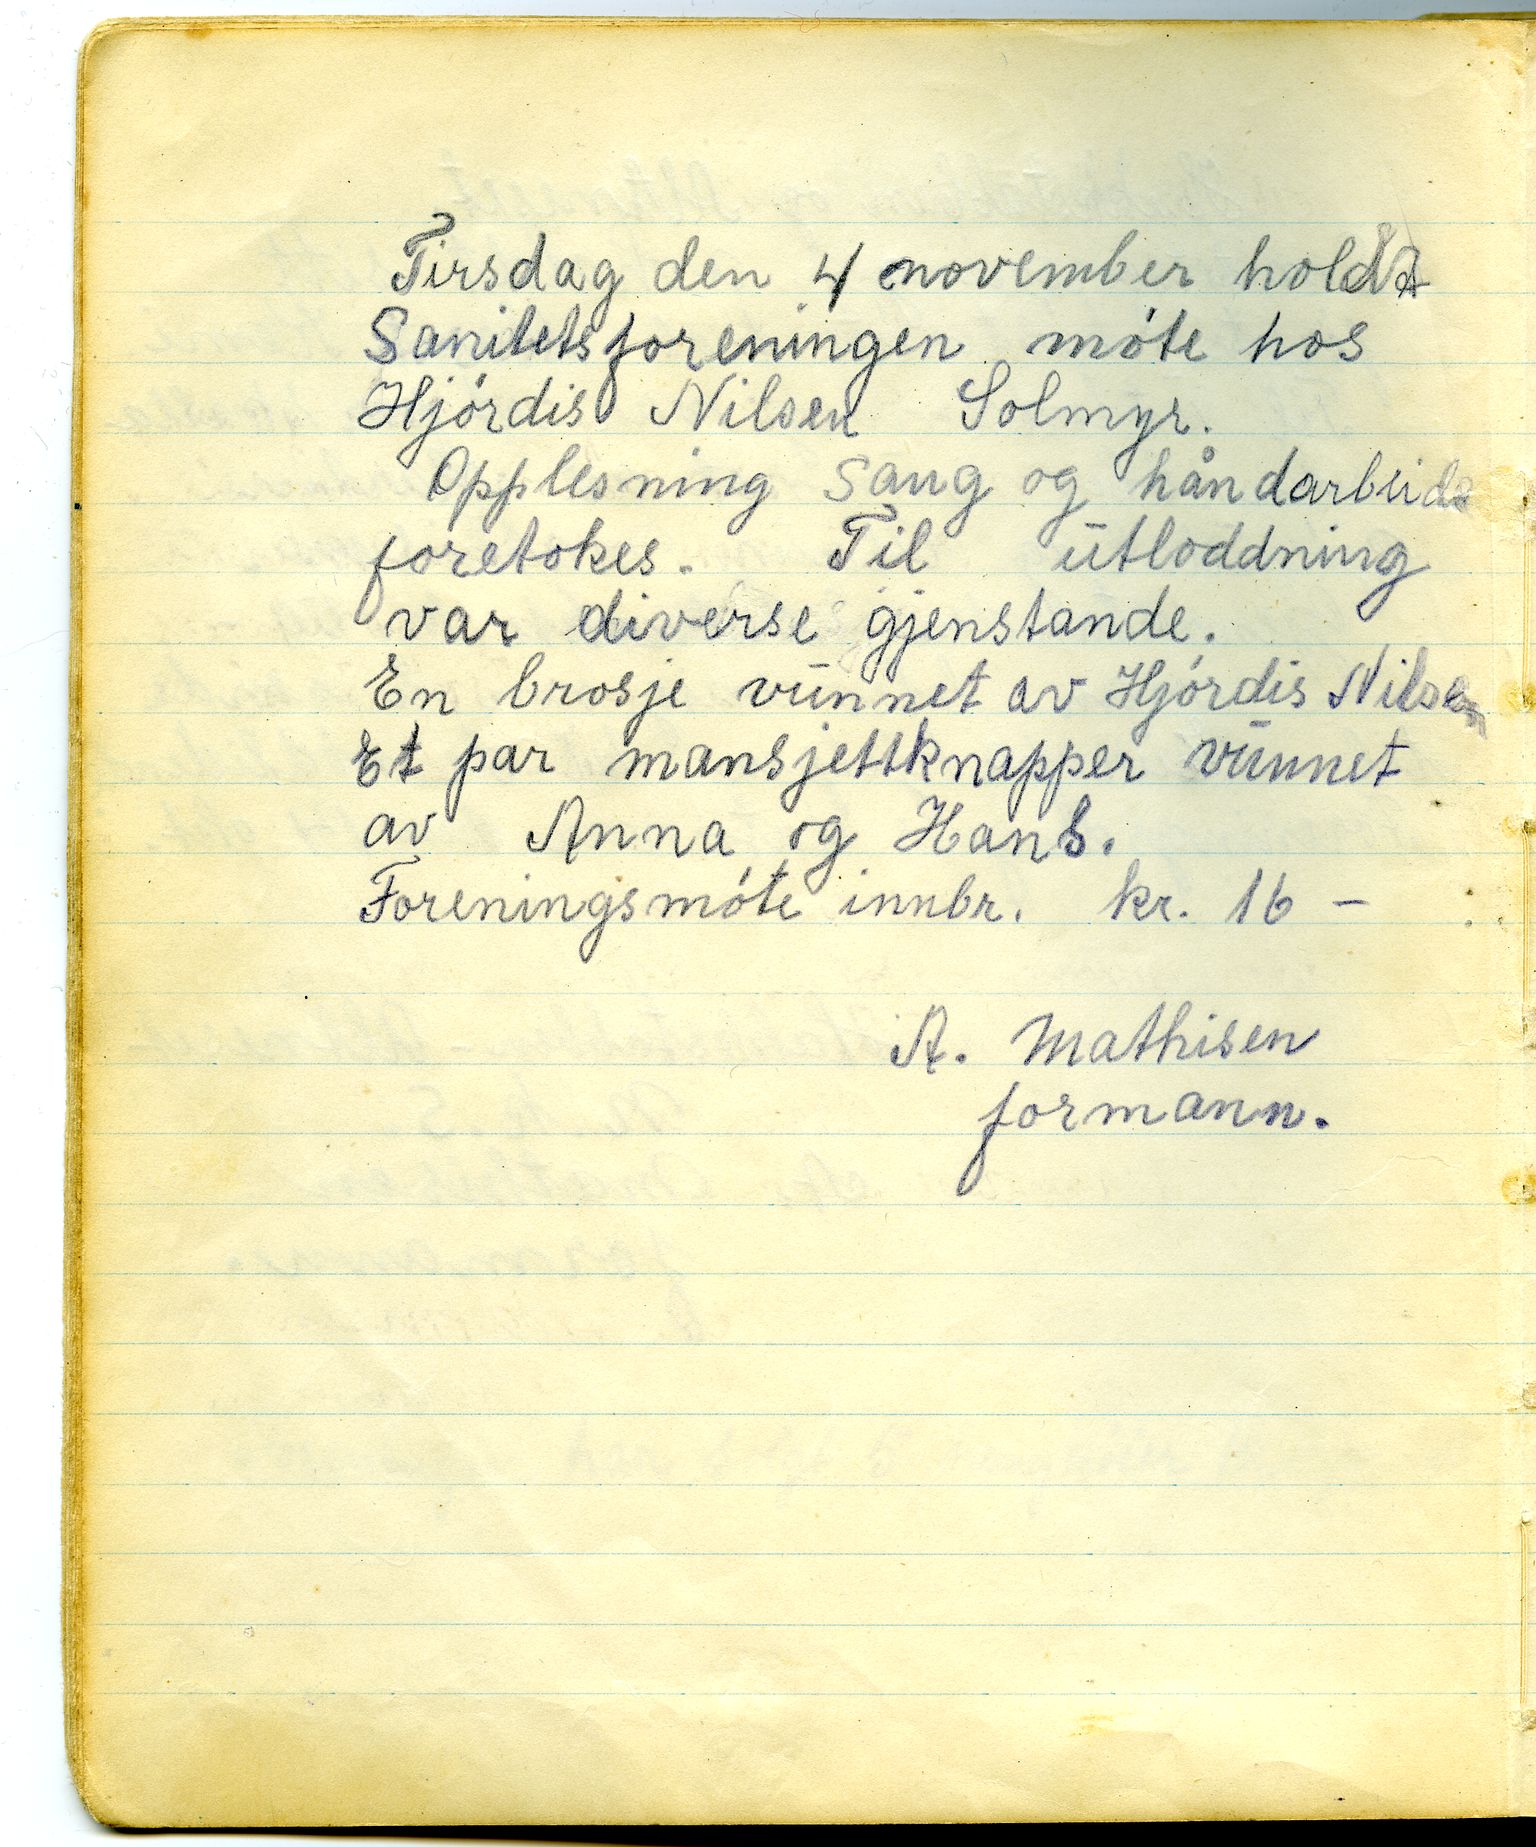 Tirsdag den 4 november holdt
Sanitetsforeningen möte hos
Hjördis Nilsen Solmyr.
Opplesning sang og håndarbeide
foretokes. Til ūtloddning
var diverse gjenstande.
En brosje vūnnet av Hjórdis Nilsen
Et par mansjettknapper vūnnet
av Anna og Hans.
Foreningsmóte innbr. kr. 16 –
A. Mathisen
formann.